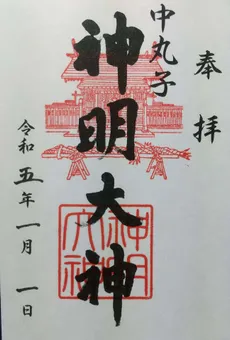 奉拝
中丸子
神明大神
令和五年一月一日
神明
大神